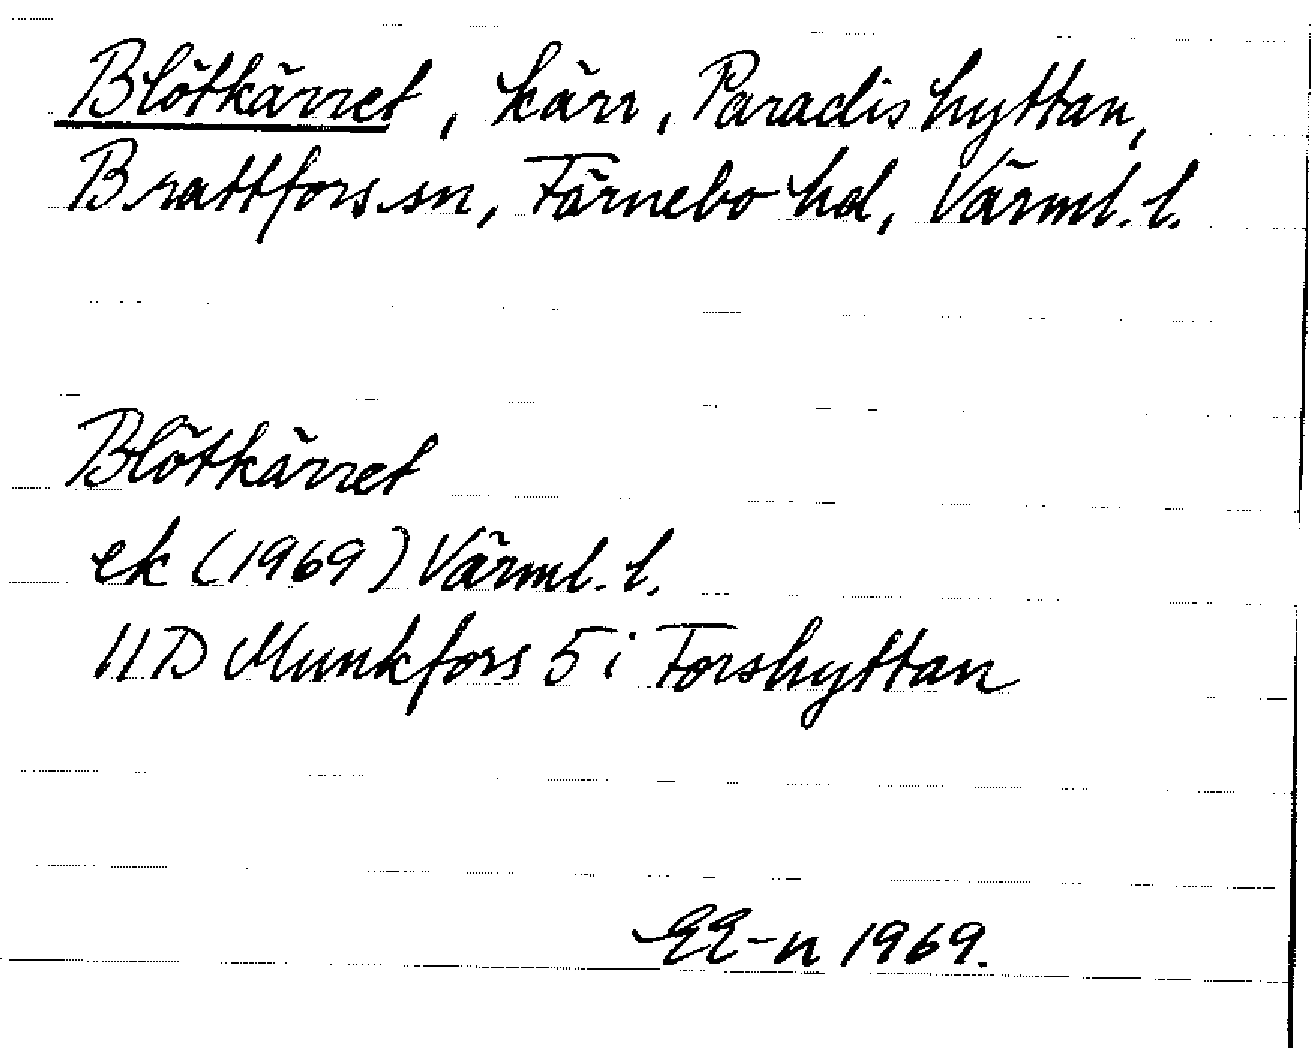 Blötkärret, kärr, Paradishyttan,
Brattfors sn, Färnebo hd, Värml. l.
Blötkärret
ek (1969) Värml. l.
11D Munkfors 5 i Forshyttan
EE-n 1969.